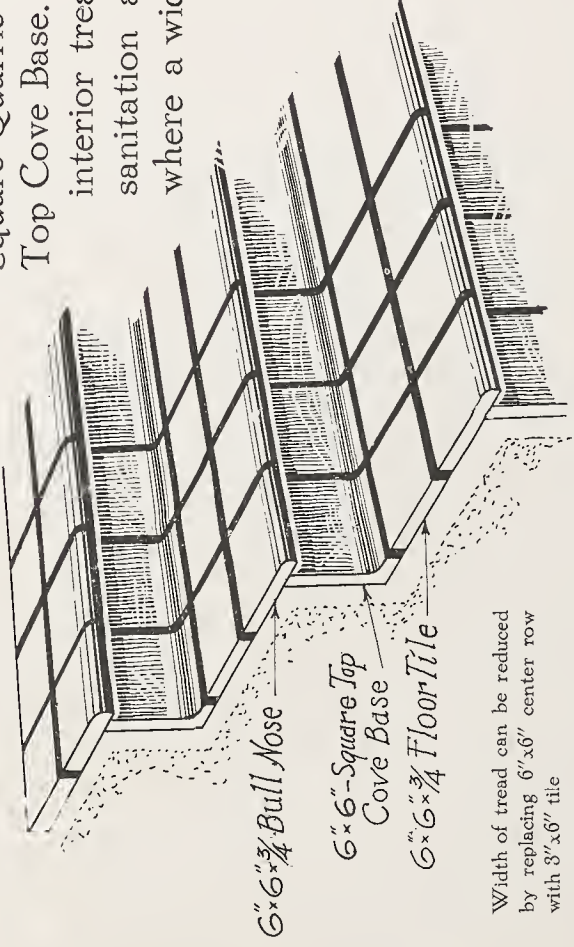 Square Quarrie
Top Cove Base.
interior trea
sanitation a
where a wid
6"x6"x3/4" Bull Nose
6"x6"-Square Top
Cove Base
6"x6"x3/4" Floor Tile
Width of tread can be reduced
by replacing 6"x6" center row
with 3"x6" tile